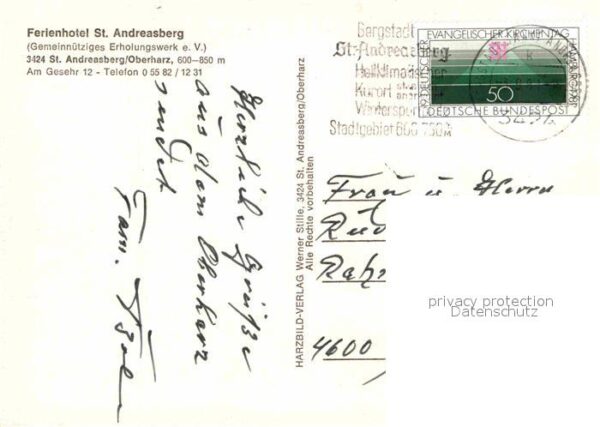 Ferienhotel St. Andreasberg
(Gemeinnütziges Erholungswerk e. V.)
3424 St. Andreasberg/Oberharz, 600–850 m
Am Gesehr 12 - Telefon 0 55 82 / 12 31
Herzliche Grüße
aus dem Oberharz
sendet
Fam.
HARZBILD-VERLAG Werner Stille, 3424 St. Andreasberg/Oberharz
Alle Rechte vorbehalten
Bergstadt
St. Andreasberg
Heilklimatischer
Kurort
Wintersport
Stadtgebiet 600
19. DEUTSCHER EVANGELISCHER KIRCHENTAG HAMBURG
50
DEUTSCHE BUNDESPOST
Frau u. Herrn
4600
privacy protection
Datenschutz